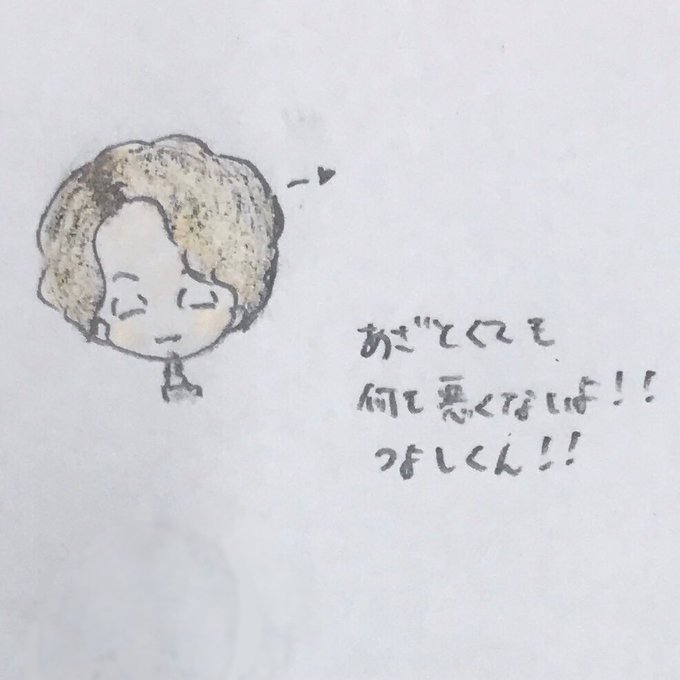 あざとくても
何も悪くないよ!!
つよしくん!!